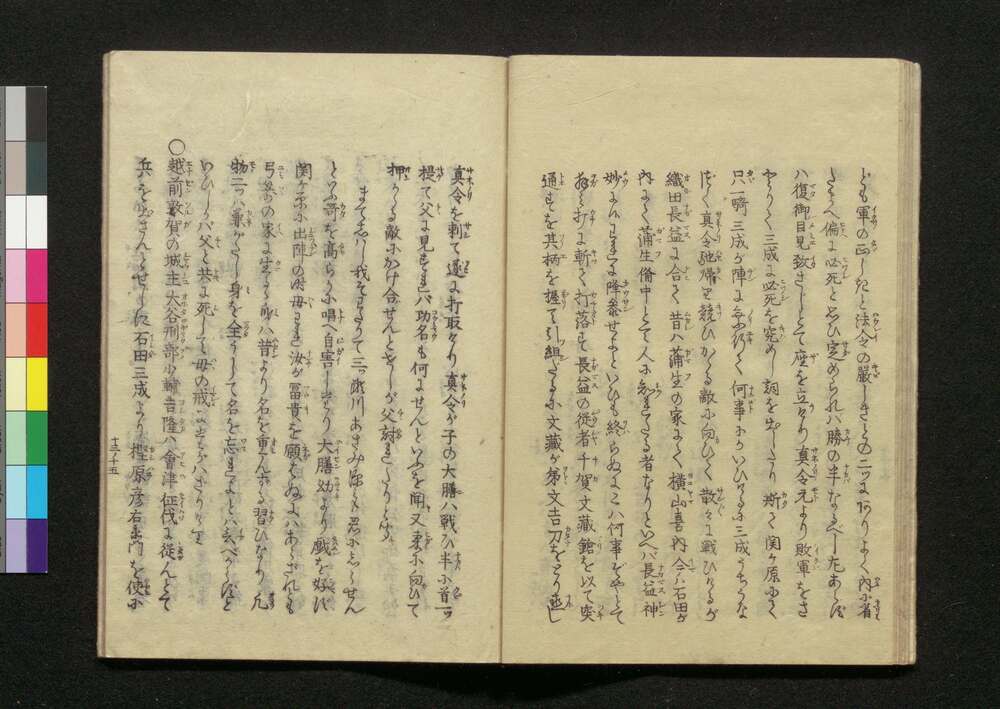 ども軍の正しきと法令の厳しきとの二ツにありよく内に省
とも偏に必死と思ひ定められれハ勝の半なるべし左あらバ
ハ復御目見致さじとて座を立けり真令元より敗軍をさ
とりて三成に必死を究めし詞を出したり斯て関ヶ原にて
只一騎三成が陣に来りて何事にかいひけるに三成うちうな
づく真令馳帰を競ひかゝる敵に向ひて散々に戦ひけるが
織田長益に合て昔ハ蒲生の家にて横山喜内今ハ石田が
内にて蒲生備中とて人に知られたる者なりといへバ長益神
妙にこそわれに降参せよといひも終らぬにこハ何事をやとて
拝み打に斬て打落す長益の従者千賀文蔵鎗を以て突
通すを其柄を握て引組たるに文蔵が弟文吉刀をとり直し
真令を刺て遂に打取けり真令が子の大膳ハ戦ひ半に首一ツ
提て父に見すれバ功名も何にせんといふを聞又敵に向ひて
押かゝる敵にかけ合せんとせしが父討れたりときゝ
まてしばし我ぞわたりて三ツ瀬川あさみ深さも君にしらせん
といふ歌を高らかに唱へ自害しけり大膳幼より戯を好バ
関ヶ原に出陣の時母われ汝が冨貴を願ハぬにハあらざれども
弓矢の家に生るゝ身ハ昔より名を重んずる習ひなり凡
物二ツハ兼がたし身を全うして名を忘れよとハ云べからずと
いひしが父と共に死して母の戒に出たがハざりけり
〇越前敦賀の城主大谷刑部少輔吉隆ハ會津征伐に従んとて
兵を出さんとせしに石田三成より樫原彦右衛門を使に
十三ノ十五